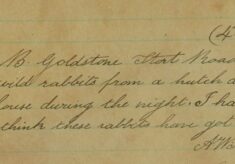 (4
B. Goldstone Stort Road
wild rabbits from a hutch a
house during the night. I ha
think these rabbits have got